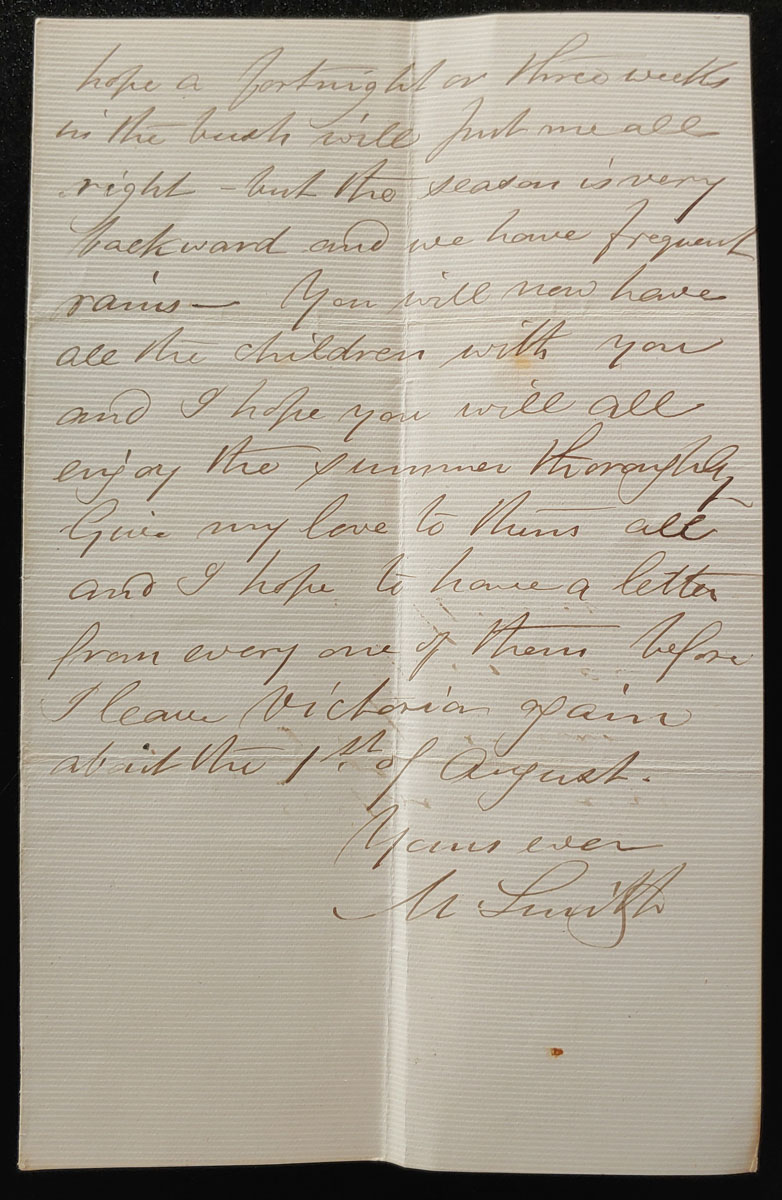 hope a fortnight or three weeks
in the bush will put me all
right - but the season is very
backward and we have frequent
rains — You will now have
all the children with you
and I hope you will all
enjoy the summer thoroughly
Give my love to them all
and I hope to have a letter
from every one of them before
I leave Victoria again
about the 1st of August.
Yours ever
M Smith